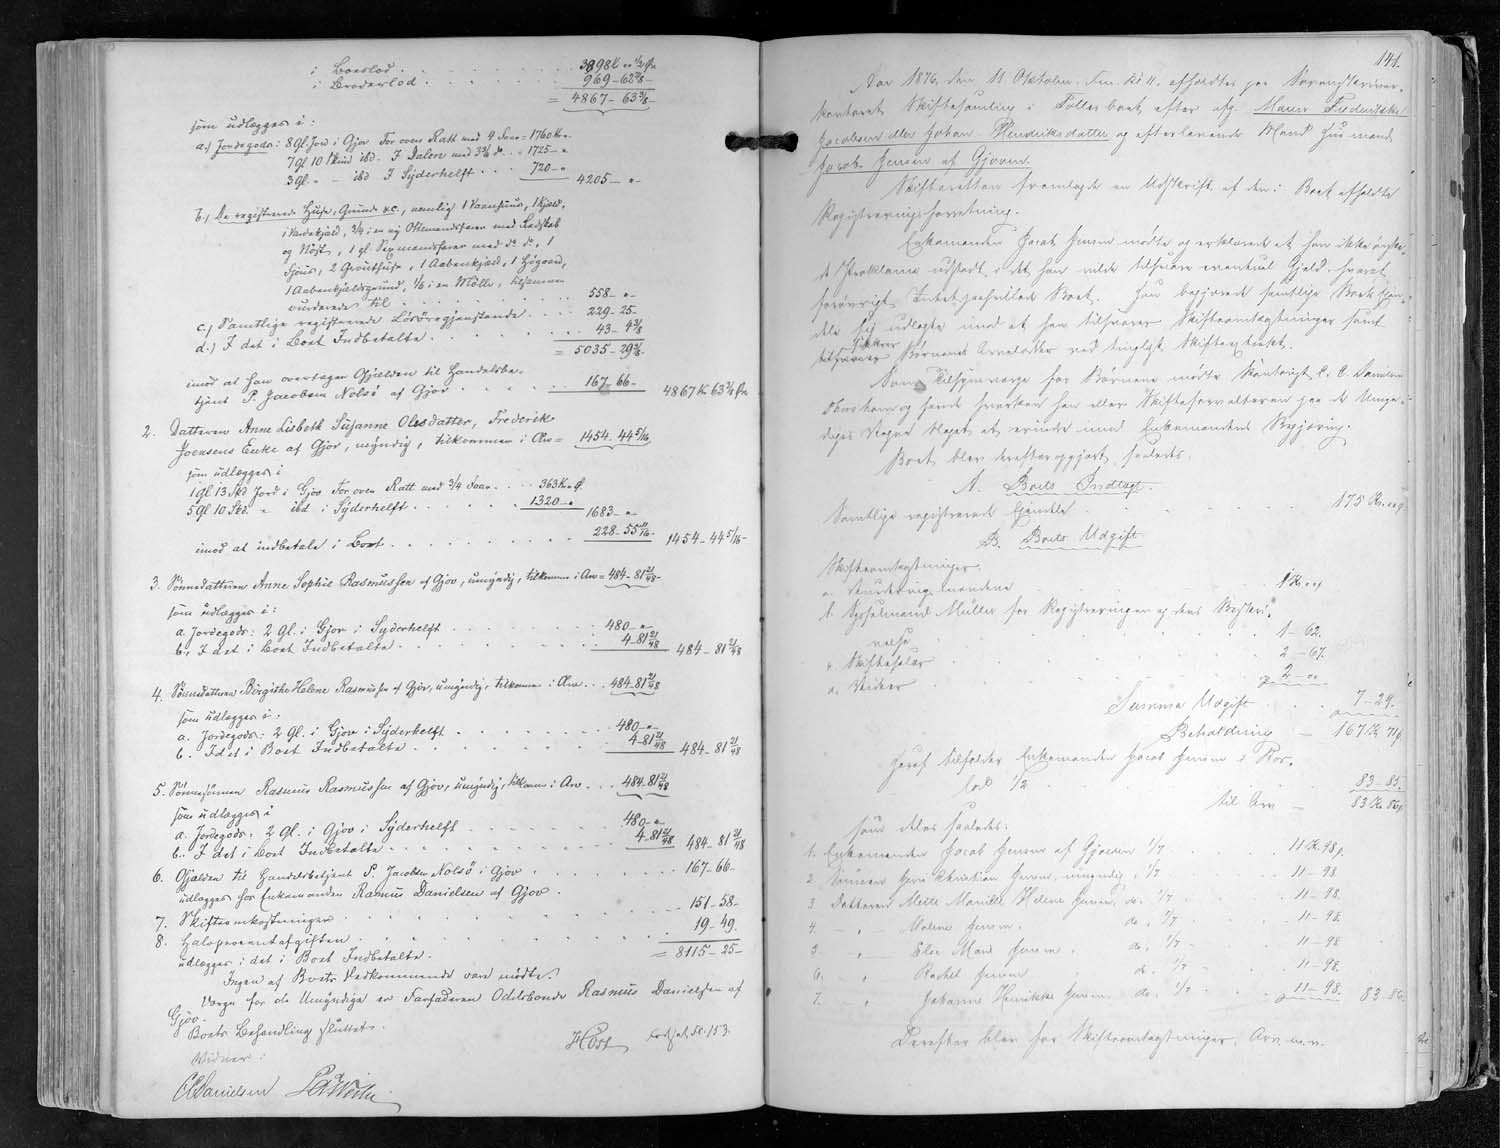 i Boeslod . . . 3898 K " ½ Ør
i Broderlod . . . 969-62⅞-
= 4867-63⅜-
som udlægges i:
a.) Jordegods: 8 Gl. Jord i Gjov For oven Ratt med 4 Faar = 1760 Kr "
7 Gl 10 Skind ibd. I Dalene med 3¾ do . . = 1725- "
3 Gl. " - ibd I Syderhelft . . . 720- "
4205- "
b.) De registrerede Huse, Grunde &c., nemlig 1 Vaanhuus, 1 Kjeld,
og Nøst, 1 gl. Sexmandsfarer med do do, 1
1 Aabenkjældsgrund, ⅙ i en Mølle, tilsammen
vurderede til . . . 558- "
c.) Samtlige registrerede Løsøregjenstande . . . 229-25-
d.) I det i Boet Indbetalte . . . 43-4⅜
= 5035-29⅜-
imod at han overtager Gjælden til Handelsbe-
tjent P. Jacobsen Nolsø af Gjov . . . 167-66- 4867 K 63⅜ Ør
2. Datteren Anne Lisbeth Susanne Olesdatter, Frederik
Joensens Enke af Gjov, myndig, tilkommer i Arv = 1454.44 5/16
som udlægges i
1 gl 13 Skd Jord i Gjov For oven Ratt med ¾ Faar . . . 363 K " Ø
5 Gl 10 Skd. " ibd i Syderhelft . . . 1320- "
1683- "
imod at indbetale i Boet . . . 228-55 11/16- 1454-44 5/16-
3. Sønnedatteren Anne Sophie Rasmussen af Gjov, umyndig, tilkommer i Arv = 484-81 21/48
som udlægges i:
a. Jordegods: 2 Gl. i Gjov i Syderhelft . . . 480- "
b. I det i Boet Indbetalte . . . 4-81 21/48 484-81 21/48
4. Sønnedatteren Birgithe Helene Rasmussen af Gjov, umyndig, tilkommer i Arv . . . 484-81 21/48
som udlægges i:
a. Jordegods: 2 Gl. i Gjov i Syderhelft . . . 480- "
b. I det i Boet Indbetalte . . . 4-81 21/48 484-81 21/48
5. Sønnesønnen Rasmus Rasmussen af Gjov, umyndig, tilkom: i Arv . . . 484-81 21/48
som udlægges i
a. Jordegods: 2 Gl. i Gjov i Syderhelft . . . 480- "
b. I det i Boet Indbetalte . . . 4-81 21/48 484-81 21/48
6. Gjælden til Handelsbetjent P. Jacobsen Nolsø i Gjov . . . 167-66-
udlægges hos Enkemanden Rasmus Danielsen af Gjov.
7. Skifteomkostninger . . . 151-58-
8. Halvprocentafgiften . . . 19-49.
udlægges i det i Boet Indbetalte. = 8115-25-
Ingen af Boets Vedkommende vare mødte.
Værge for de Umyndige er Farfaderen Odelsbonde Rasmus Danielsen af
Gjov.
Boets Behandling sluttet.
Høst
Vidner:
CDanielsen
141.
Aar 1876, den 11 Oktober, Fm. Kl 11, afholdtes paa Sorenskriver-
kontoret Skiftesamling i Fællesboet efter afg. Maren Frederikke
Jacobsen eller Johan-Hendriksdatter og efterlevende Mand Huusmand
Jacob Jensen af Gjoven.
Skifteretten fremlagde en Udskrift af den i Boet afholdte
Registreringsforretning.
Enkemanden Jacob Jensen mødte og erklærede at han ikke ønske-
de Proklama udstedt, idet han vilde tilsvare eventuel Gjeld, hvoraf
forøvrigt Intet paahvilede Boet. Han begjærede samtlige Boets Eien-
dele sig udlagte imod at han tilsvarer Skifteomkostninger samt
sikkrer
tilsvarer Børnenes Arvelodder ved tinglyst Skifteextrakt.
Som Tilsynsværge for Børnene mødte Kontorist C. C. Danielsen
Thorshavn og havde hverken han eller Skifteforvalteren paa de Umyn-
diges Vegne Noget at erindre imod Enkemandens Begjæring.
Boet blev derefter opgjort saaledes.
A. Boets Indtægt.
Samtlige registrerede Eiendele . . . 175 Kr. " Ø
B. Boets Udgift
Skifteomkostninger.
a. Vurderingsmændene . . . 1 Kr. " Ø
b. Sysselmand Müller for Registreringen og dens Beskri-
velse . . . 1-62.
c. Skiftesalær . . . 2-67.
d. Vidner . . . 2- "
Summa Udgift . . . 7-29.
Beholdning - 167 K 71 Ø
Heraf tilfalder Enkemanden Jacob Jensen i Boes-
lod ½ . . . 83-85.
til Arv - 83 Kr. 86 Ø
som deles saaledes:
1. Enkemanden Jacob Jensen af Gjoven 1/7 . . . 11 K. 98 Ø.
2. Sønnen Jens Christian Jensen, umyndig, 1/7 . . . 11-98.
3. Datteren Mette Marie Helene Jensen, do, 1/7 . . . 11-98.
4. - " - Malene Jensen, do, 1/7 . . . 11-98.
5. - " - Else Marie Jensen, do, 1/7 . . . 11-98
6. - " - Rachel Jensen do, 1/7 . . . 11-98.
7. - " - Johanne Henrikke Jensen, do, 1/7 . . . 11-98. 83-86.
Derefter blev for Skifteomkostninger, Arv m. v.